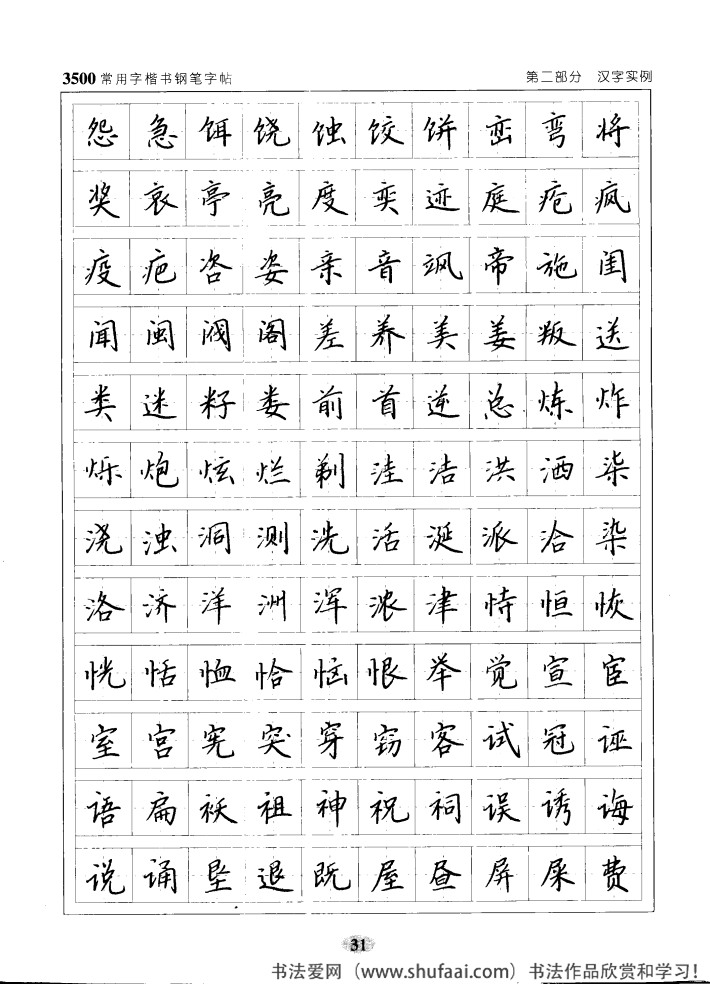 3500 常用字楷书钢笔字帖 第二部分 汉字实例
怨 急 饵 饶 蚀 饺 饼 峦 弯 将
奖 哀 亭 亮 度 奕 迹 庭 疮 疯
疫 疤 咨 姿 亲 音 飒 帝 施 闺
闻 闽 阀 阁 差 养 美 姜 叛 送
类 迷 籽 娄 前 首 逆 总 炼 炸
烁 炮 炫 烂 剃 洼 洁 洪 洒 柒
浇 浊 洞 测 洗 活 涎 派 洽 染
洛 济 洋 洲 浑 浓 津 恃 恒 恢
恍 恬 恤 恰 恼 恨 举 觉 宣 宦
室 宫 宪 突 穿 窃 客 试 冠 诬
语 扁 袄 祖 神 祝 祠 误 诱 诲
说 诵 垦 退 既 屋 昼 屏 屎 费
31
书法爱网（www.shufaai.com）书法作品欣赏和学习！